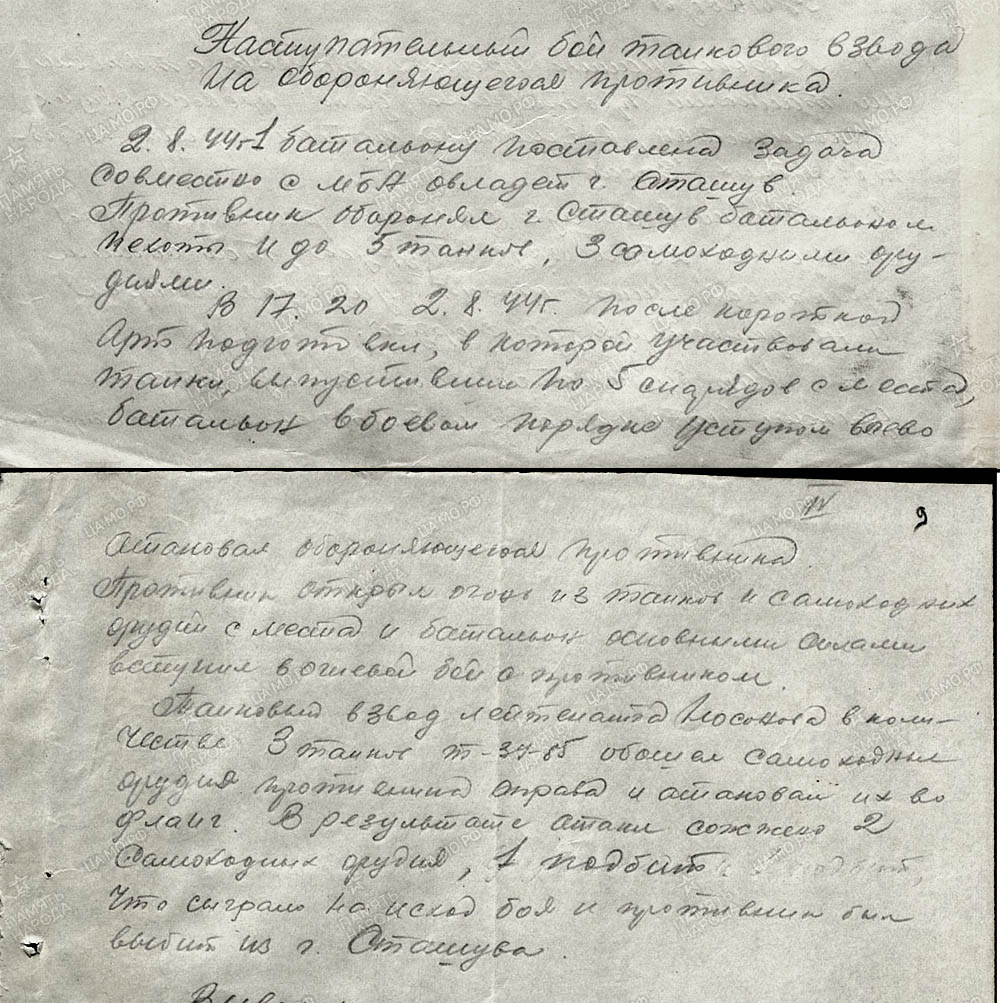 Наступательный бой танкового взвода
на обороняющегося противника.
2.8.44г. 1 батальону поставлена задача
совместно с МБА овладет г. Сташув.
Противник оборонял г. Сташув батальоном
пехоты и до 5 танков, 3 самоходными ору-
диями.
В 17.20 2.8.44г. после короткой
Арт подготовки, в которой участвовали
танки, выпустивши по 5 снарядов с места,
батальон в боевом порядке уступом влево
IV
9
атаковал обороняющегося противника.
Противник открыл огонь из танков и самоходных
орудий с места и батальон основными силами
вступил в огневой бой с противником.
Танковый взвод лейтенанта Носокова в коли-
честве 3 танков Т-34-85 обошел самоходные
орудия противника справа и атаковал их во
фланг. В результате атаки сожжено 2
самоходных орудия, 1 подбит
Что сыграло на исход боя и противник был
выбит из г. Сташува.